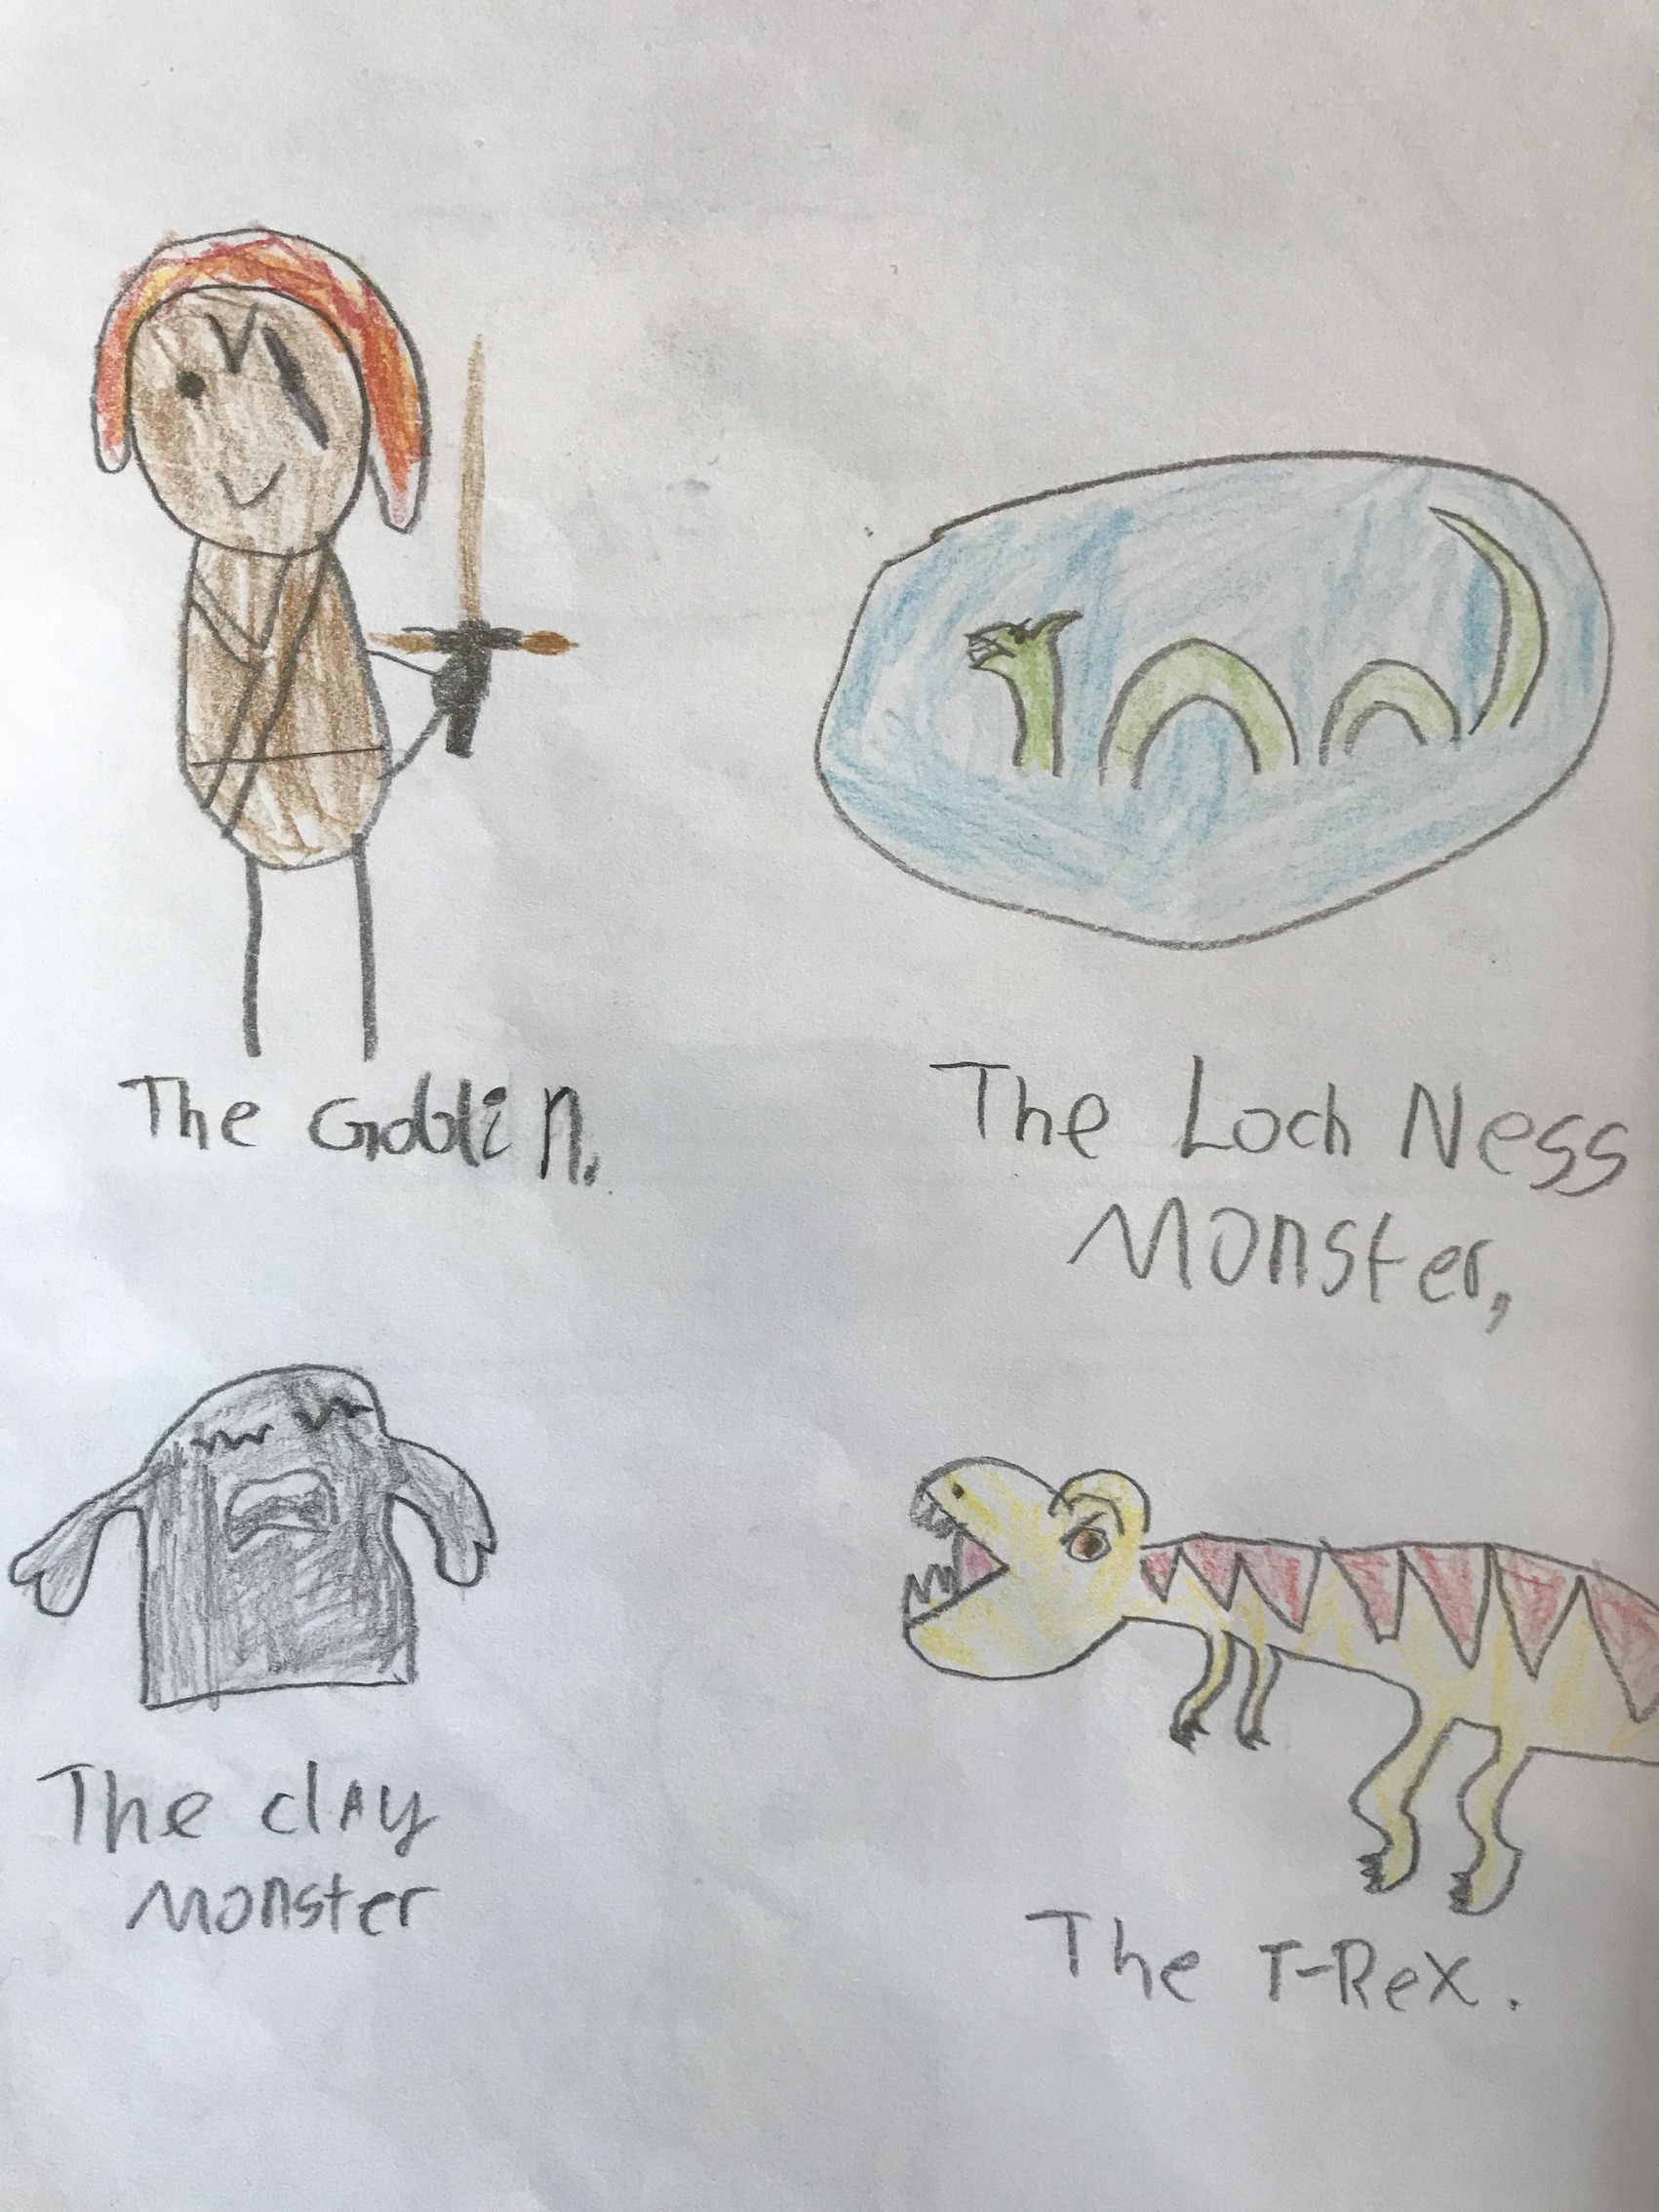 The Goblin.
The Loch Ness
Monster,
The clAy
Monster
The T-Rex.